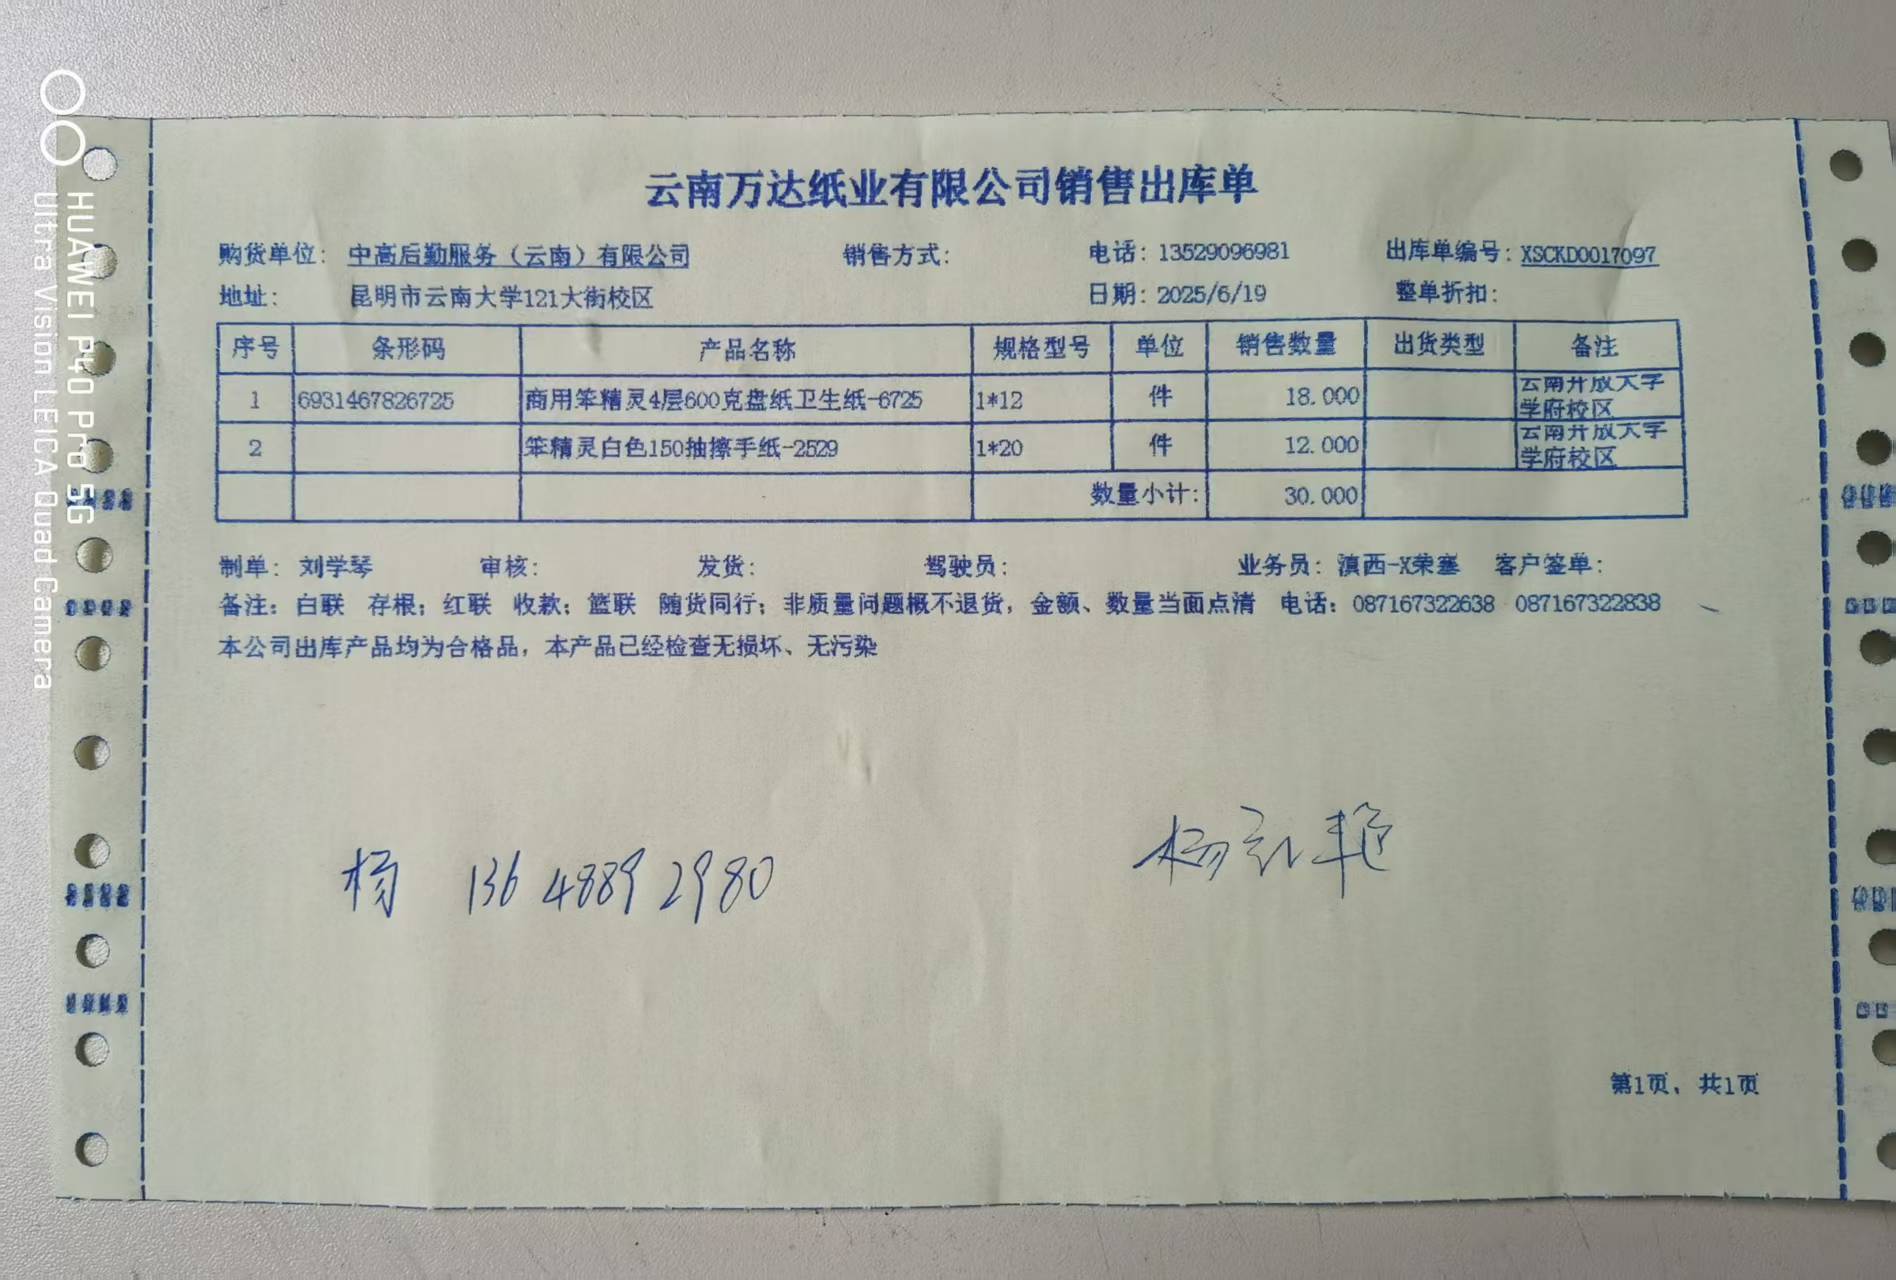 云南万达纸业有限公司销售出库单
购货单位: 中高后勤服务（云南）有限公司 销售方式: 电话: 13529096981 出库单编号: XSCKD0017097
地址: 昆明市云南大学121大街校区 日期: 2025/6/19 整单折扣:
序号 条形码 产品名称 规格型号 单位 销售数量 出货类型 备注
1 6931467826725 商用笨精灵4层600克盘纸卫生纸-6725 1*12 件 18.000 云南开放大学学府校区
2 笨精灵白色150抽擦手纸-2529 1*20 件 12.000 云南开放大学学府校区
数量小计: 30.000
制单: 刘学琴 审核: 发货: 驾驶员: 业务员: 滇西-X荣蹇 客户签单:
备注: 白联 存根; 红联 收款; 篮联 随货同行; 非质量问题概不退货, 金额、数量当面点清 电话: 087167322638 087167322838
本公司出库产品均为合格品, 本产品已经检查无损坏、无污染
杨 13648892980
杨 艳
第1页、共1页
HUAWEI P40 Pro 5G
Ultra Vision LEICA Quad Camera